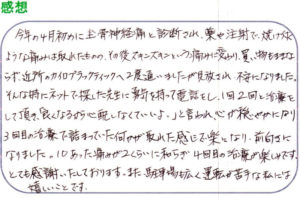 感想
今年の4月初めに坐骨神経痛と診断され、薬や注射で、焼け付く
ような痛みは取れたものの、その後ズキンズキンという痛みに変わり、買い物もままな
らず近所のカイロプラクティックへ2度通いましたが見放され、不安になりました。
そんな時にネットで探した先生に勇気を持って電話をし、1回2回と治療を
して頂き、良くなるから心配しなくていいよ。と言われ心が穏やかになり
3回目の治療で詰まっていた何かが取れた感じで楽になり、前向きに
なりました。10あった痛みが2くらいに和らぎ4回目の治療が楽しみです。
とても感謝いたしております。また、駐車場も広く運転が苦手な私には
嬉しいことです。